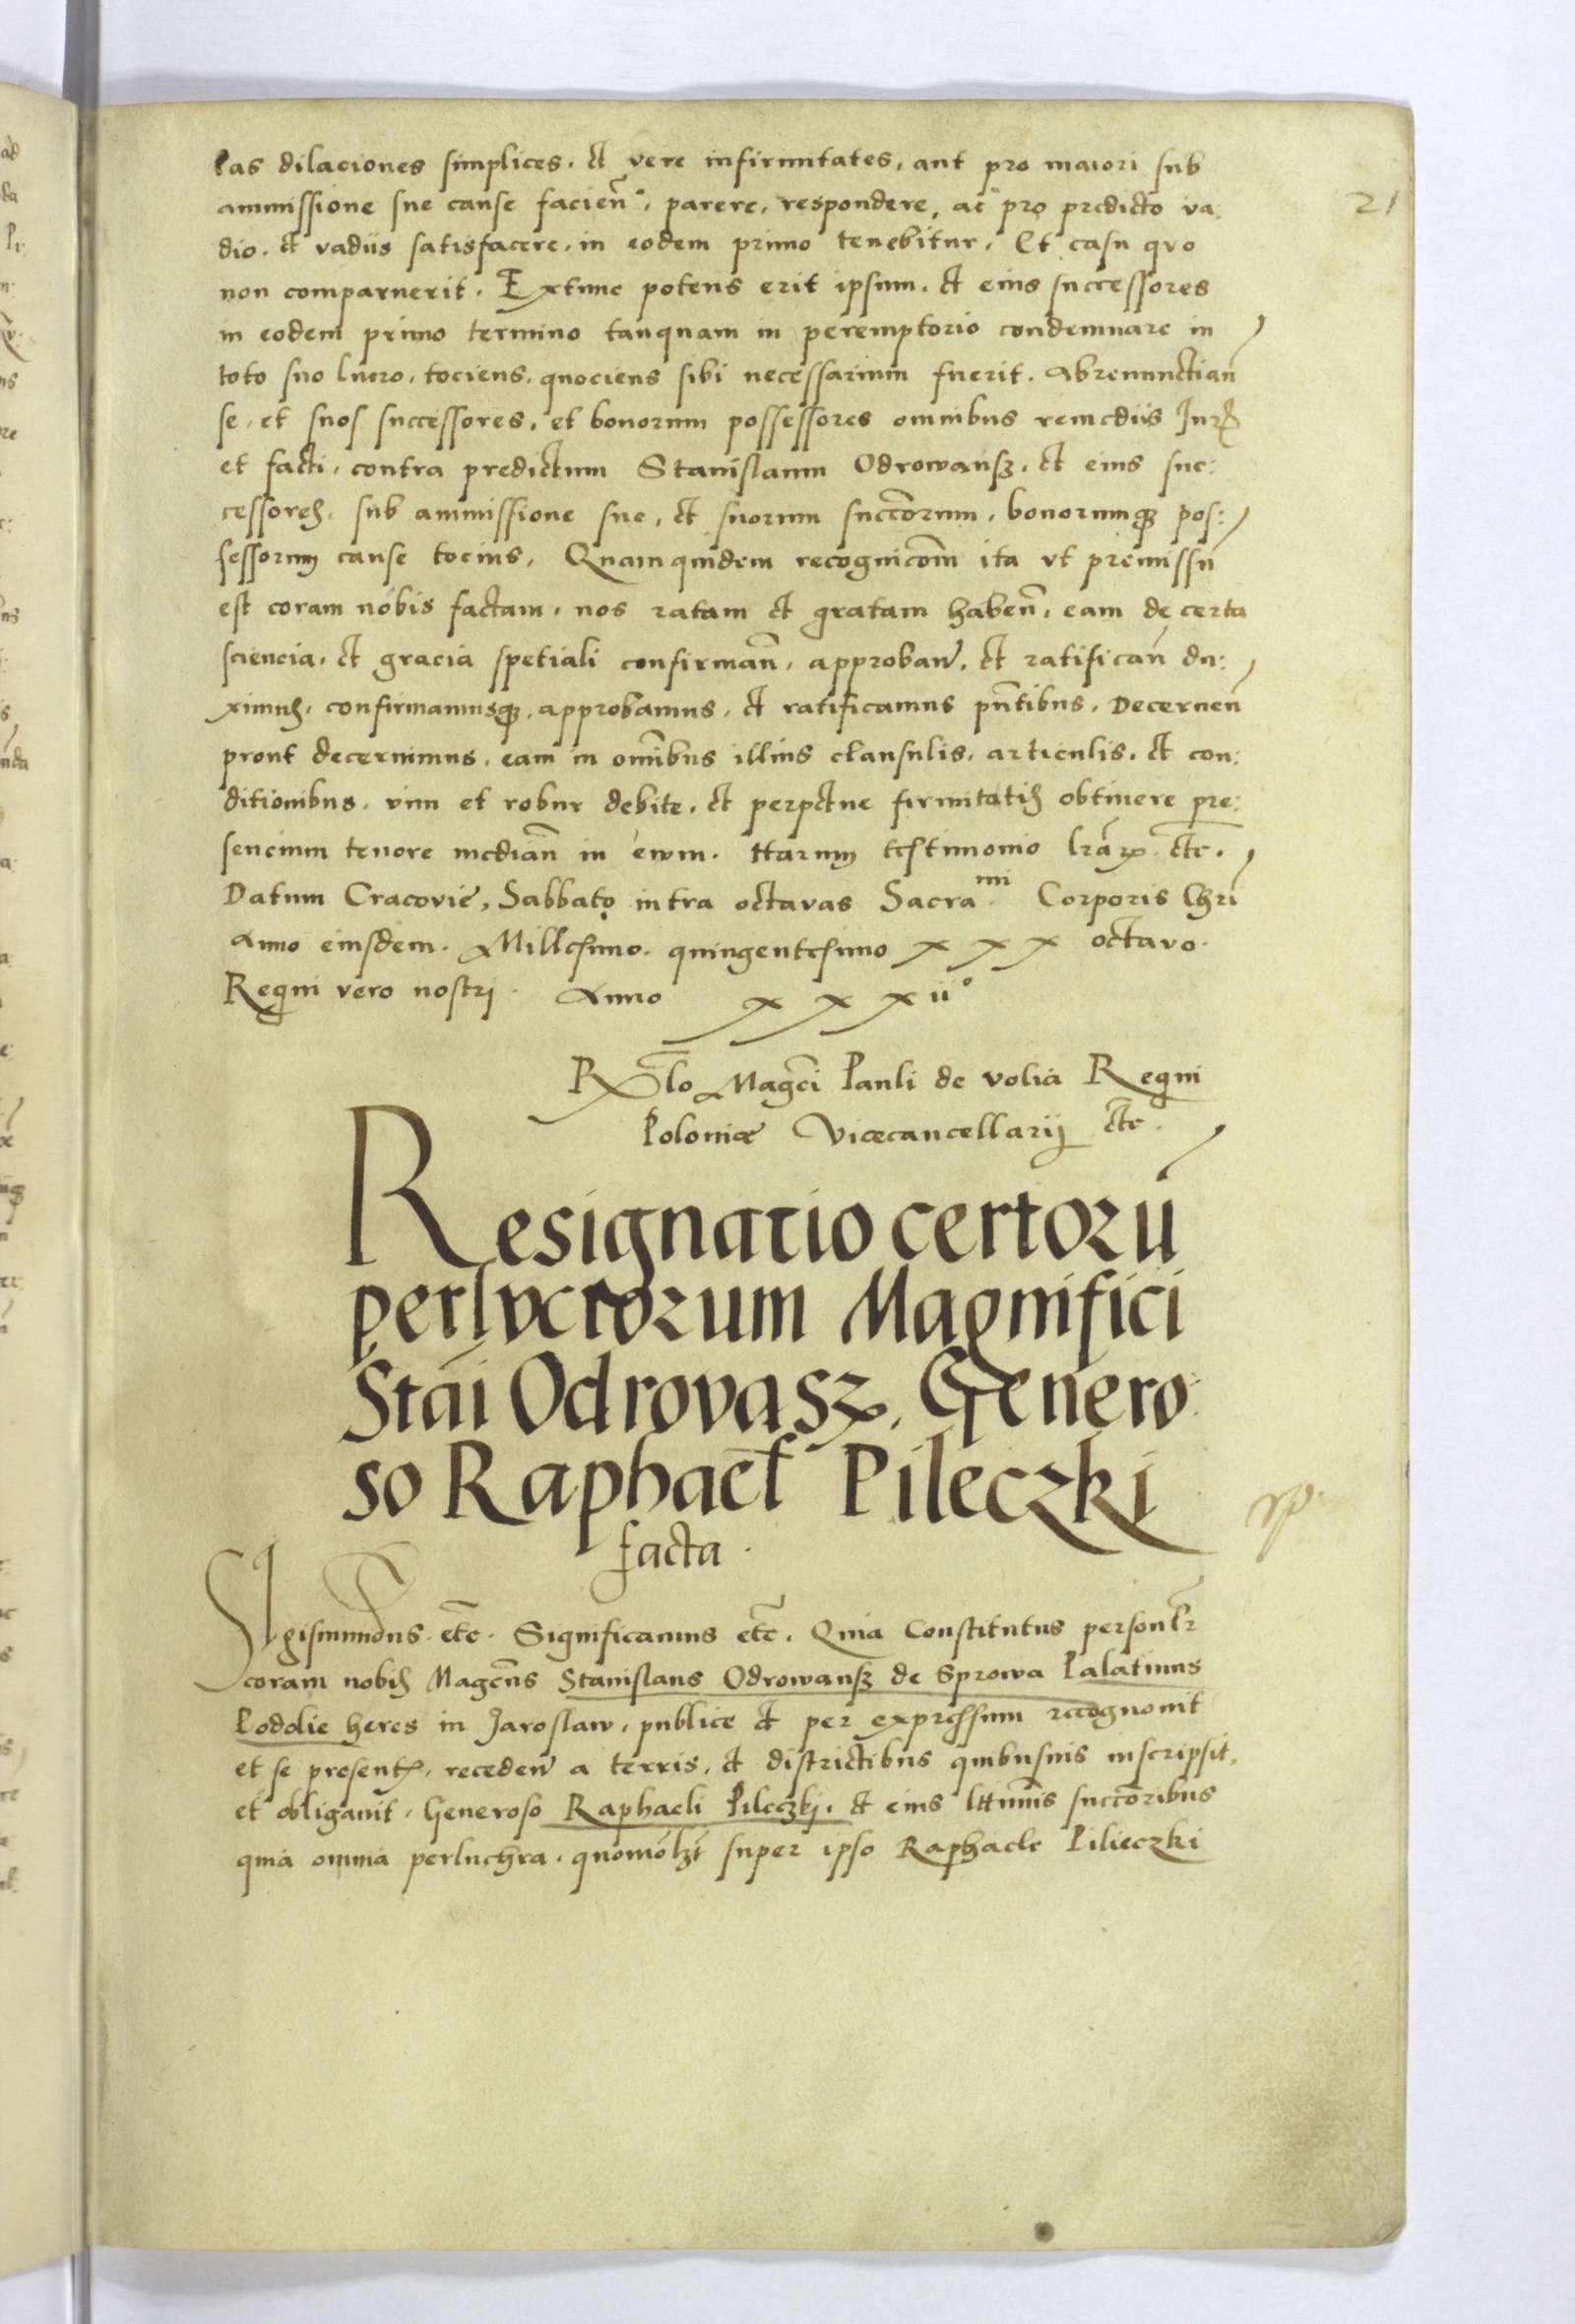 las dilaciones simplices. et vere infirmitates, aut pro maiori sub
21
ammissione sue cause facieñ, parere, respondere, ac pro predicto va:
dio. et vadiis satisfacere. in eodem primo tenebitur. Et casu quo
non comparuerit. Extunc potens erit ipsum. et eius successores
in eodem primo termino tanquam in peremptorio condemnare in
toto suo lucro. tociens. quociens sibi necessarium fuerit. Abrenunctiañ
se. et suos successores. et bonorum possessores omnibus remediis Jurꝭ
et facti. contra predictum Stanislaum Odrowansz. et eius suc:
cessores. sub ammissione sue. et suorum succ̃orum. bonorumqꝫ pos:
sessorum cause tocius. Quamquidem recognicõm ita vt premissũ
est coram nobis factam. nos ratam et gratam habeñ. eam de certa
sciencia. et gracia spetiali confirmañ. approbañ. et ratificañ du:
ximus. confirmamusqꝫ. approbamus. et ratificamus pñtibus. Decerneñ
prout decernimus. eam in omĩbus illius clausulis. articulis. et con:
ditionibus. vim et robur debite. et perpetue firmitatis obtinere pre:
sencium tenore mediañ in ewm. Harum testimonio lrãꝝ etc.
Datum Cracovie, Sabbato intra octavas Sacra^mi Corporis Chri
Anno eiusdem. Millesimo. quingentesimo x x x octavo.
Regni vero nostri. Anno x x x ii°
Rᵉlo Magc̃i Pauli de volia Regni
Poloniæ Vicecancellarij etc.
Resignatio certorũ
perluctorum Magnifici
Stãi Odrovasz. Genero
so Raphaeł Pileczki
facta.
Sigismundus. etc̃. Significamus etc̃. Quia Constitutus personłr
coram nobis Magc̃us Stanislaus Odrowansz de Sprowa Palatinus
Podolie heres in Jaroslaw. publice et per expressum recognouit
et se presentꝭ. recedeñ a terris. et districtibus quibusuis inscripsit.
et obligauit. Generoso Raphaeli Pileczkj. et eius lttimis succ̃oribus
quia omnia perluchra. quomołzt super ipso Raphaele Pilieczki